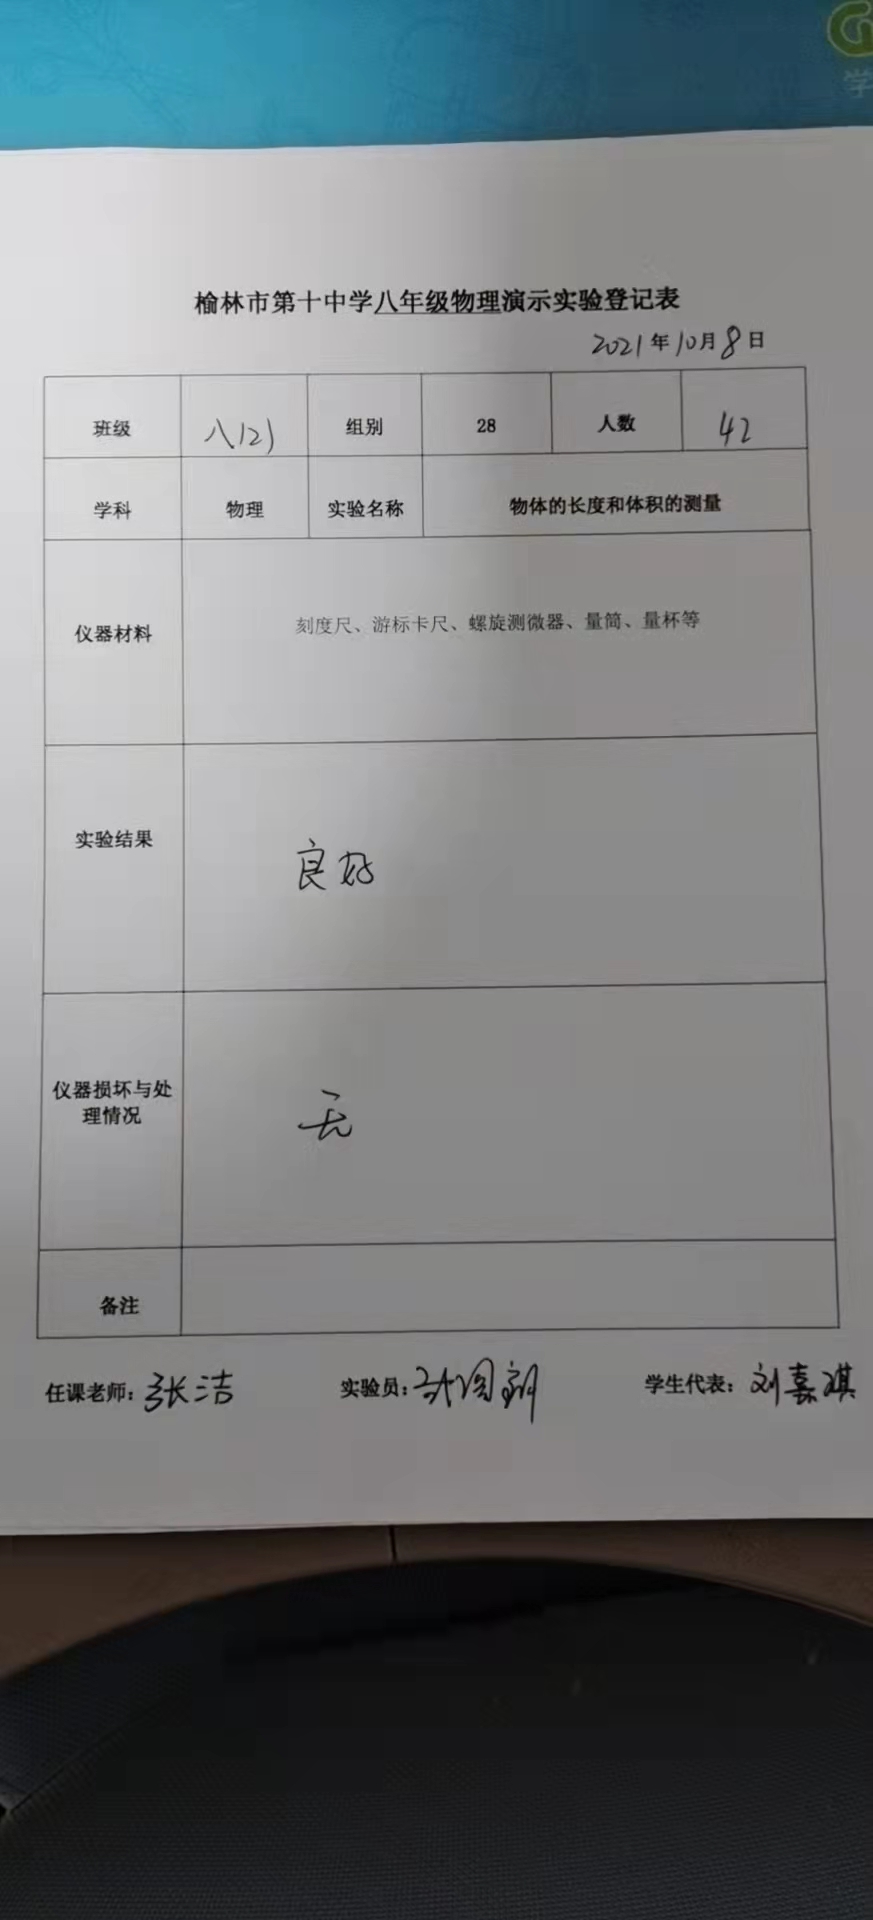 学
榆林市第十中学八年级物理演示实验登记表
2021年10月8日
班级 八(2) 组别 28 人数 42
学科 物理 实验名称 物体的长度和体积的测量
仪器材料 刻度尺、游标卡尺、螺旋测微器、量筒、量杯等
实验结果 良好
仪器损坏与处
理情况 无
备注
任课老师：张洁 实验员： 学生代表：刘嘉琪